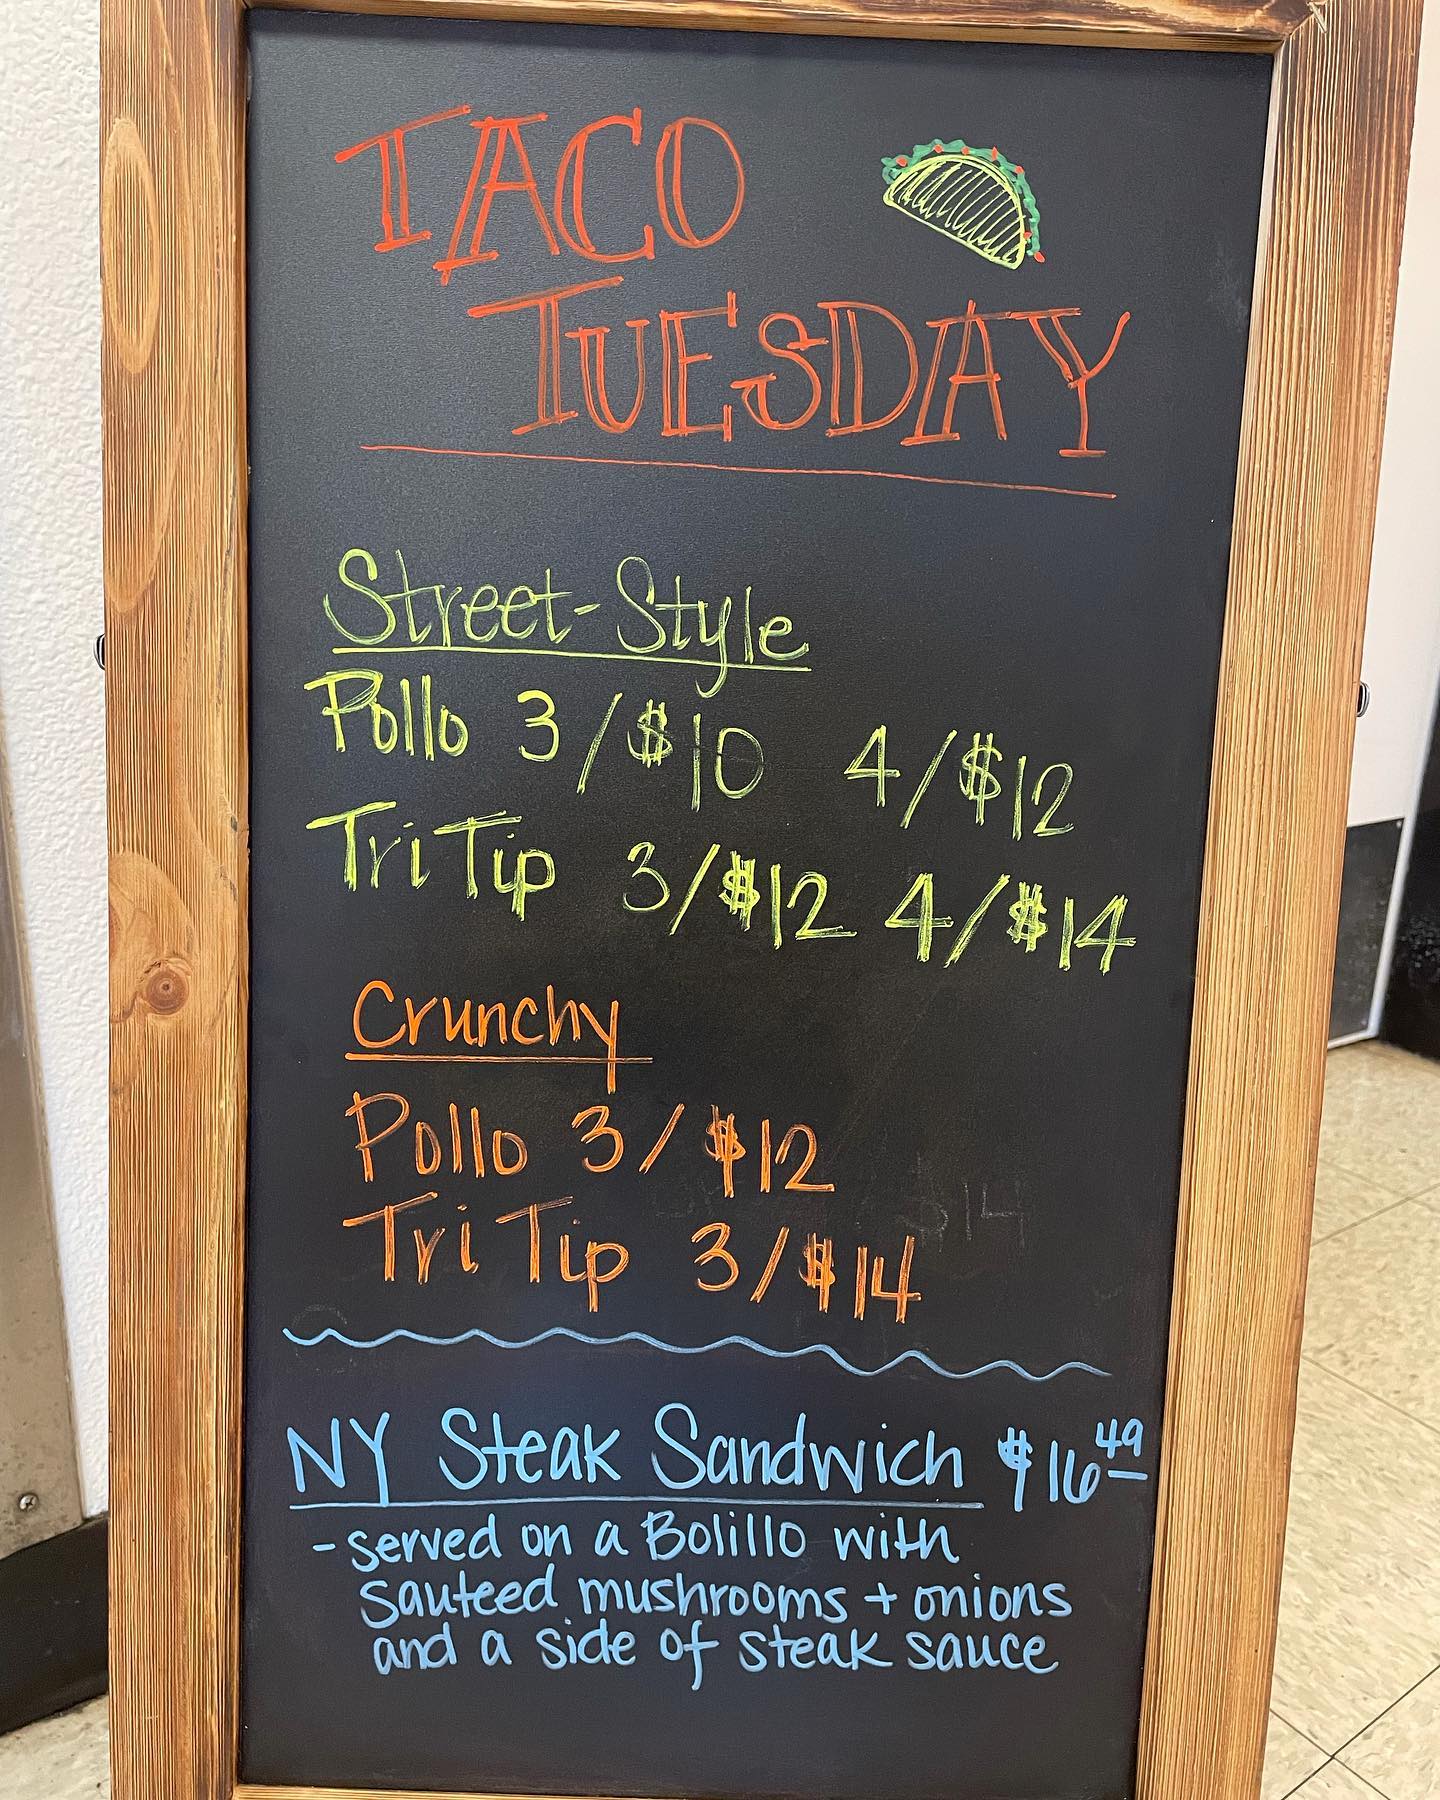 TACO
TUESDAY
Street-Style
Pollo 3/$10 4/$12
Tri Tip 3/$12 4/$14
Crunchy
Pollo 3/$12
Tri Tip 3/$14
NY Steak Sandwich $16 49
- served on a Bolillo with
sauteed mushrooms + onions
and a side of steak sauce